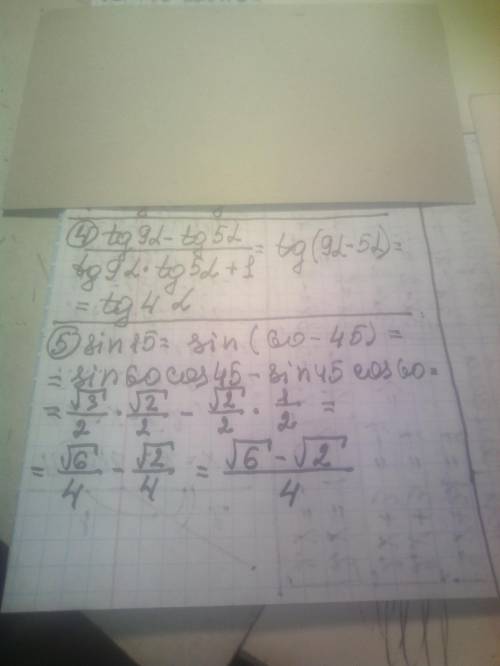 ④ tg9α - tg5α
tg9α · tg5α + 1 = tg(9α-5α)=
= tg4α
⑤ sin15= sin(60-45)=
= sin60cos45-sin45 cos60=
= √3/2 · √2/2 - √2/2 · 1/2 =
= √6/4 - √2/4 = (√6 - √2)/4